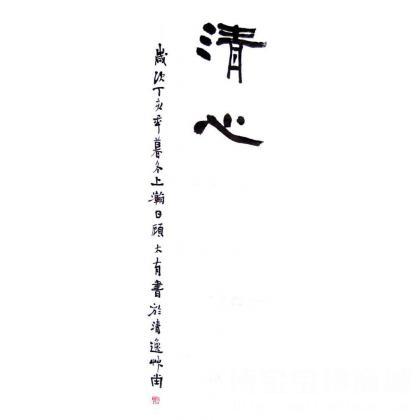 清心
歲次丁亥年暮冬上瀚日顧大有書於清逸艸堂